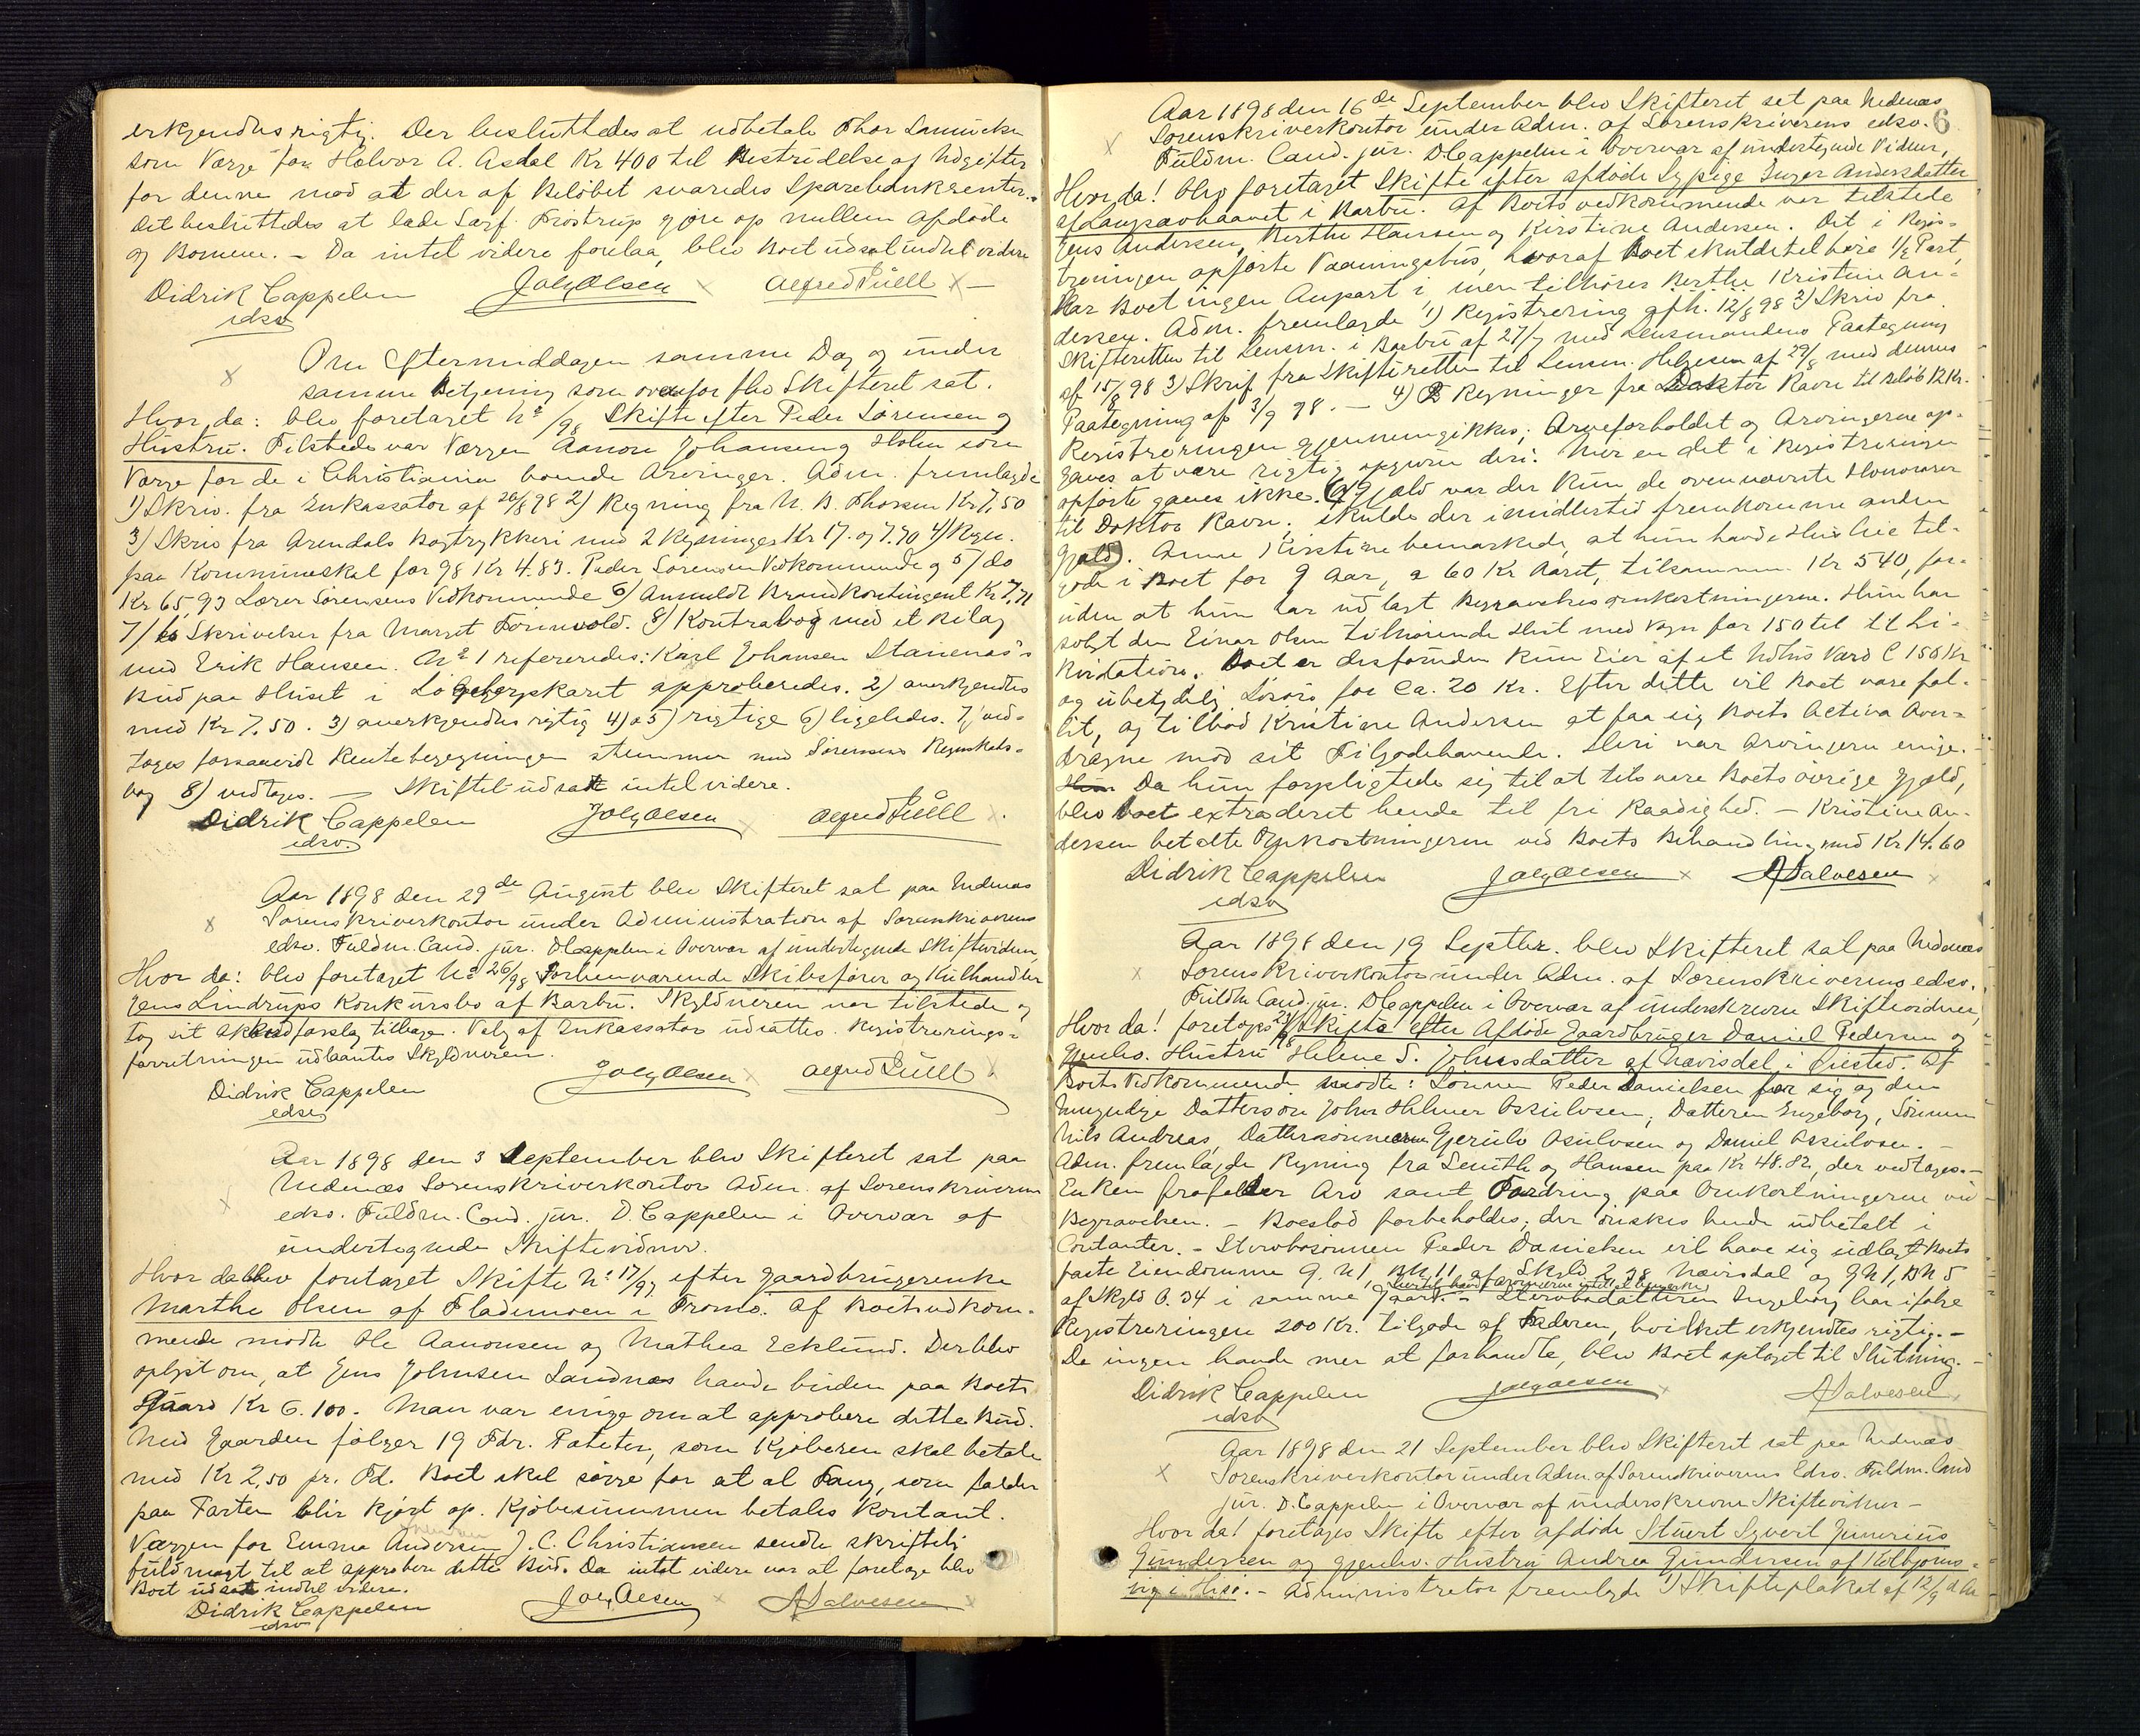 erkjendtes rigtig. Der besluttedes at udbetale Thor
som Værge for Halvor A. Asdal Kr 400 til Bestridelse af Udgifter
for denne mod at der af Beløbet svaredes Sparebankrenter.
Det besluttedes at lade Sagf. Frostrup gjøre op mellem Afdøde
og Børnene. – Da intet videre forelaa, blev Boet udsat indtil videre
Didrik Cappelen Joh Olsen Alfred Püell
edsv
Om Eftermiddagen samme Dag og under
samme Betjening som ovenfor blev Skifteret sat.
Hvor da: blev foretaget No /98 Skifte efter Peder Sørensen og
Hustru. Tilstede var Værgen Aanon Johansen og Holm som
Værge for de i Christiania boende Arvinger. Adm. fremlagde
1) Skriv. fra Inkassator af 26/8 98 2) Regning fra N. B. Thorsen Kr 7,50
3) Skriv fra Arendals Bogtrykkeri med 2 Regninger Kr 17. og 7.70 4) Regn.
paa Kommuneskat for 98 Kr 4.83. Peder Sørensen Vedkommende og 5) do
Kr 65,93 Lærer Sørensens Vedkommende 6) Anmeldt Brandkontingent Kr 7,71
7) to Skrivelser fra Margit 8) Kontrabog med et Bilag
med Erik Hansen. No 1 refereredes: Karl Johansen
Bud paa Huset i approberedes. 2) anerkjendtes
med Kr 7.50. 3) anerkjendtes rigtig 4) og 5) rigtige 6) ligeledes. 7) ved-
tages forsaavidt Renteberegningen stemmer med Sørensens Regnskabs-
bog 8) vedtages. – Skiftet udsatt intil videre.
Didrik Cappelen Joh Olsen Alfred Püell
edsv.
Aar 1898 den 29de August blev Skifteret sat paa Nedenæs
Sorenskriverkontor under Administration af Sorenskriverens
edsv. Fuldm. Cand. jur. D Cappelen i Overvær af undertegnede Skiftevidner,
Hvor da: blev foretaget No 26/98 Forhenværende Skibsfører og Kulhandler
Jens Lindrups Konkursbo af Barbu. Skyldneren var tilstede og
tog sit Akkordforslag tilbage. Valg af Inkassator udsattes. Registrerings-
forretningen udlaantes Skyldneren.
Didrik Cappelen Joh Olsen Alfred Püell
edsv
Aar 1898 den 3 September blev Skifteret sat paa
Nedenæs Sorenskriverkontor Adm. af Sorenskriverens
edsv. Fuldm. Cand. jur. D. Cappelen i Overvær af
undertegnede Skiftevidner.
Hvor da blev foretaget Skifte No 17/97 efter Gaardbrugerenke
Marthe Olsen af Flademoen i Tromø. Af Boets vedkom-
mende mødte Ole Aanonsen og Mathea Ecklund. Der blev
oplyst om, at Jens Johnsen Sandnæs havde buden paa Boets
Gaard Kr 6.100. Man var enige om at approbere dette Bud.
Med Gaarden følger 19 Tdr. Poteter, som Kjøberen skal betale
med Kr 2,50 pr. Td. Boet skal sørge for at al Tang, som falder
paa Tarten blir kjørt op. Kjøbesummen betales kontant.
Værgen for Emma Andersen J. C. Christiansen sendte skriftlig
fuldmagt til at approbere dette Bud. Da intet videre var at foretage blev
Boet udsat indtil videre.
Didrik Cappelen Joh Olsen A Salvesen
edsv
6
Aar 1898 den 16de September blev Skifteret sat paa Nedenæs
Sorenskriverkontor under Adm. af Sorenskriverens edsv.
Fuldm. Cand. jur. D Cappelen i Overvær af undertegnede Vidner,
Hvor da! blev foretaget Skifte efter afdøde Sypige Inger Andersdatter
af i Barbu. Af Boets vedkommende var tilstede
Jens Andersen, Berthe Hansen og Kirstine Andersen. Det i Regis-
treringen opførte Vaaningshus, hvoraf Boet skulde tilhøre 1/2 Part,
har Boet ingen Anpart i men tilhører Berthe Kristine An-
dersen. Adm. fremlagde 1) Registrering afh. 12/8 98 2) Skriv fra
Skifteretten til Lensm. i Barbu af 27/7 med Lensmandens Paategning
af 15/8 98 3) Skrif fra Skifteretten til Lensm. Helgesen af 29/8 med dennes
Paategning af 3/9 98. – 4) Regninger fra Doktor Ravn til Beløb 12 Kr.
Registreringen gjennemgikkes; Arveforholdet og Arvingerne op-
gaves at være rigtig opgivne deri. Mer en det i Registreringen
opførte gaves ikke. Af Gjæld var der kun de ovennævnte Honorarer
til Doktor Ravn; skulde der imidlertid fremkomme anden
Gjæld. Anne Kirstine bemærkede, at hun havde Husleie til-
gode i Boet for 9 Aar, a 60 Kr Aaret, tilsammen Kr 540, for-
uden at hun har udlagt Begravelsesomkostningerne. Hun har
solgt den Einar Olsen tilhørende Hest med Vogn for 150 til
Boet er desforuden kun Eier af et Udhus Værd C 150 Kr
og ubetydelig Løsøre for Ca. 20 Kr. Efter dette vil Boet være fal-
lit, og tilbød Kristine Andersen at faa sig Boets Activa over-
dragne mod sit Tilgodehavende. Heri var Arvingerne enige. –
Da hun forpligtede sig til at tilsvare Boets øvrige Gjæld,
blev boet extraderet hende til fri Raadighed. – Kristine An-
dersen betalte Omkostningerne ved Boets Behandling med Kr 14.60
Didrik Cappelen Joh Olsen A Salvesen
edsv
Aar 1898 den 19 Septbr. blev Skifteret sat paa Nedenæs
Sorenskriverkontor under Adm. af Sorenskriverens edsv.
Fuldm Cand. jur. D Cappelen i Overvær af underskrevne Skiftevidner,
Hvor da! foretoges Skifte efter Afdøde Gaardbruger Daniel Pedersen og
Gjenlev. Hustru Helene S. Johnsdatter af Nævisdal i Øiested. Af
Boets Vedkommende mødte: Sønnen Peder Danielsen for sig og den
umyndige Dattersøn John Helmer Osulvsen, Datteren Engeborg, Sønnen
Nils Andreas, Dattersønnerne Gjerulv Osulvsen og Daniel Osulvsen. –
Adm. fremlagde Regning fra Smith og Hansen paa Kr 48.82, der vedtages. –
Enken frafalder Arv samt Fordring paa Omkostningerne ved
Begravelsen. – Boeslod forbeholdes; der ønskes hende udbetalt i
Contanter. – Stervbosønnen Peder Danielsen vil have sig udlagt Boets
faste Eiendomme G. N 1, BN 11, af Skyld 2,98 Nævisdal og GN 1, BN 5
af Skyld 0.34 i samme Gaard – Stervbodatteren Ingeborg har ifølge
Registreringen 200 Kr. tilgode af Faderen, hvilket erkjendtes rigtig. –
Da ingen havde mer at forhandle, blev Boet optaget til Slutning. –
Didrik Cappelen Joh Olsen A Salvesen
edsv
Aar 1898 den 21 September blev Skifteret sat paa Nedenæs
Sorenskriverkontor under Adm. af Sorenskriverens Edsv. Fuldm. Cand
jur. D. Cappelen i Overvær af underskrevne Skiftevidner –
Hvor da! foretoges Skifte efter afdøde Stuert Syvert Junerius
Gundersen og gjenlev. Hustru Andrea Gundersen af Kolbjørns-
vig i Hisø. – Administrator fremlagde 1) Skifteplakat af 12/9